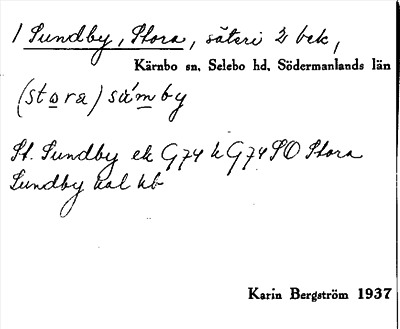 1 Sundby, Stora, säteri 2 bek,
Kärnbo sn, Selebo hd, Södermanlands län
(stora) sám̱by
St. Sundby ek G74 k G74 PO Stora
Sundby kal kb
Karin Bergström 1937